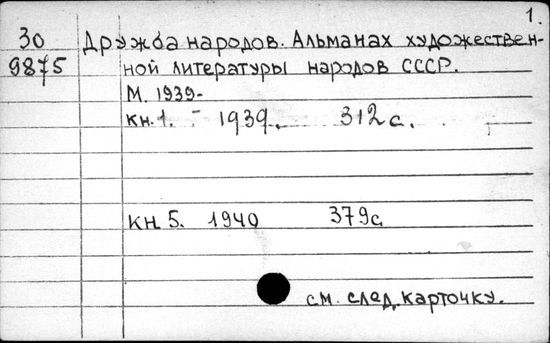 1.
30 Дружба народов. Альманах художествен-
9875 ной литературы народов СССР.
М. 1939-
кн. 1. - 1939. 312 с.
кн. 5. 1940 379 с.
см. след. карточку.